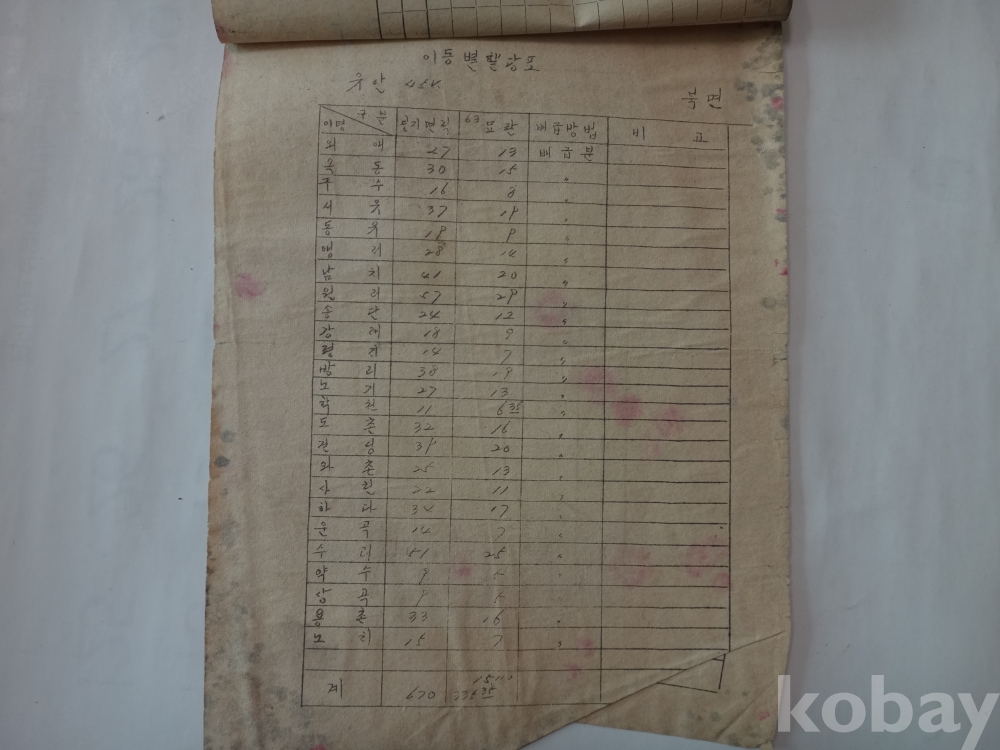 이동별 할당표
유안
북면
이명 구분 면적 63. 묘판 배급방법 비고
외애 27 13 배급분
옥동 30 15 〃
구수 16 8 〃
서웃 37 19 〃
동웃 18 9 〃
맹리 28 14 〃
남치 41 20 〃
원리 57 29 〃
송단 24 12 〃
강례 18 9 〃
평지 14 7 〃
방리 38 19 〃
노기 27 13 〃
학천 11 6 35 〃
도촌 32 16 〃
39 20 〃
와촌 25 13 〃
사천 22 11 〃
하다 34 17 〃
운곡 14 7 〃
수리 51 25 〃
약수 9 5 〃
상곡 9 5
용촌 33 16 〃
노치 15 7 〃
계 670 335 35
kobay